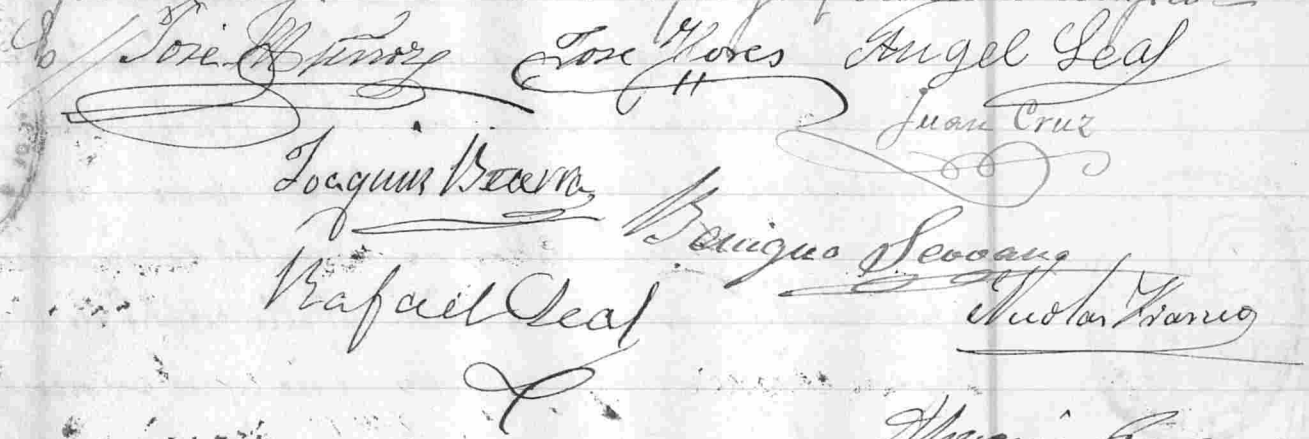 José Muñoz José Flores Angel Leal
Juan Cruz
Joaquin Becerra
Benigno Seoane
Rafael Leal
Nicolas Franco